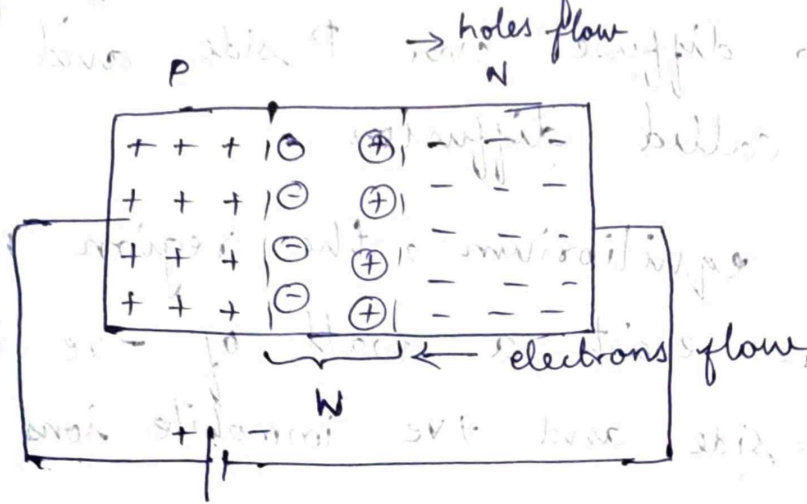 → holes flow
P N
+ + + ⊖ ⊕ - - -
+ + + ⊖ ⊕ - - -
+ + + ⊖ ⊕ - - -
+ + + ⊖ ⊕ - - -
- - -
← electrons flow
W
+ -